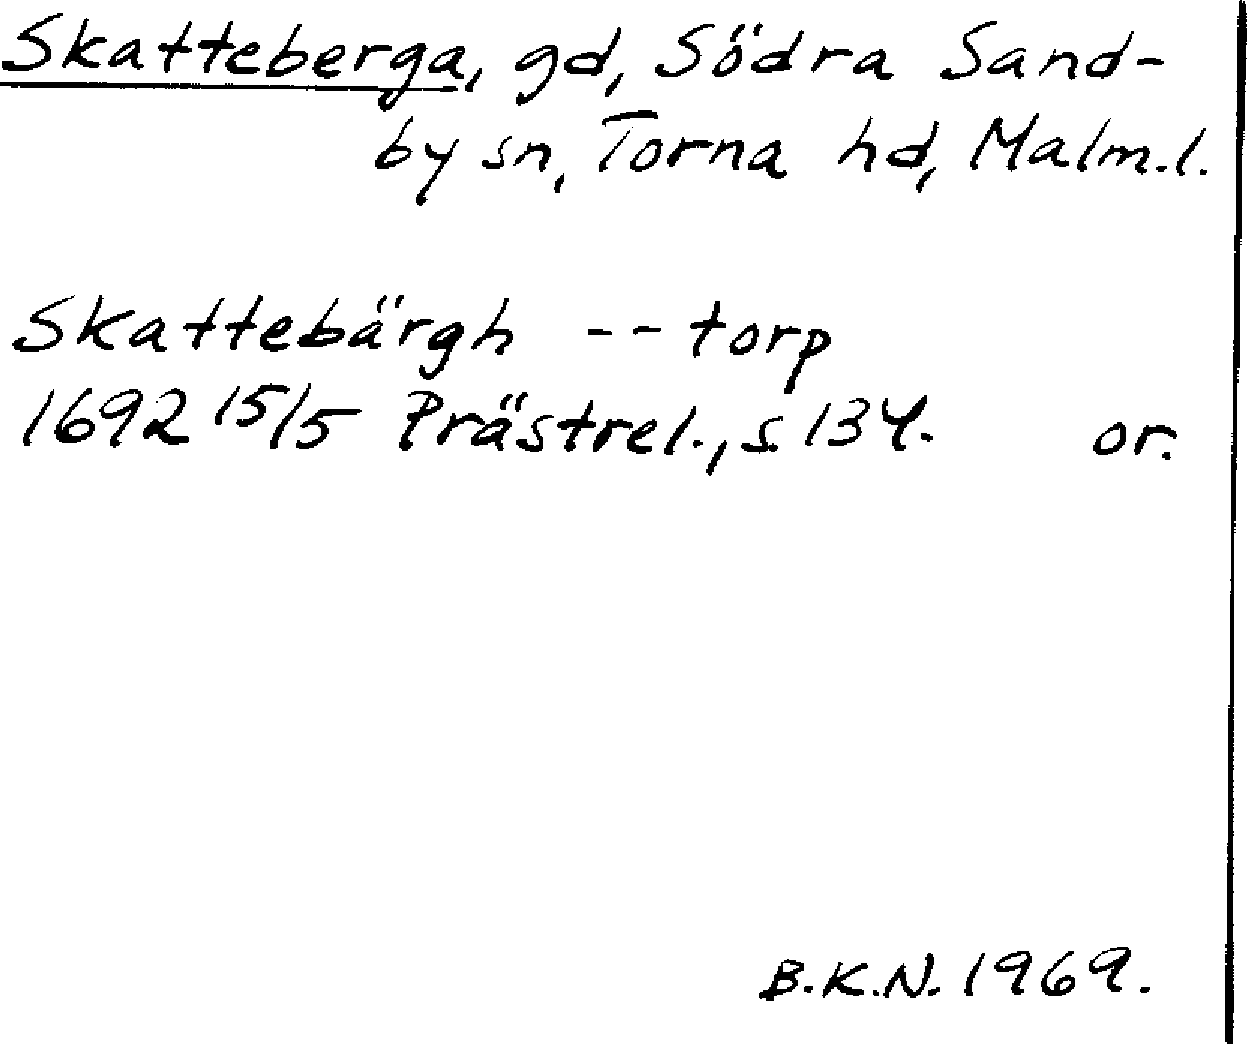 Skatteberga, gd, Södra Sand-
by sn, Torna hd, Malm.l.
Skattebärgh -- torp
1692 15/5 Prästrel., s. 134. or.
B.K.N. 1969.